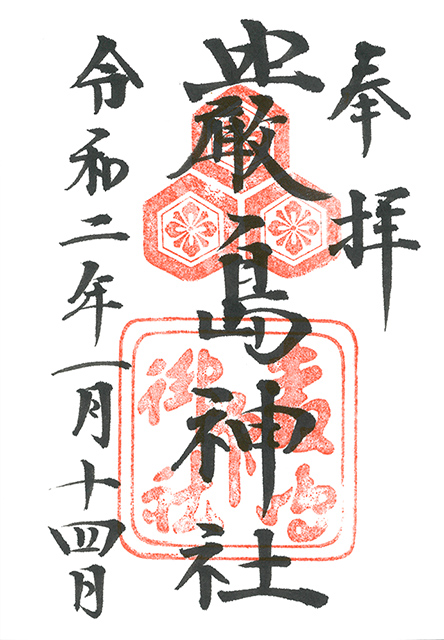 奉拝
嚴島神社
令和二年一月十四日